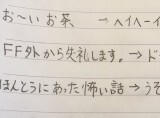 お〜いお茶 → ヘイヘーイ
FF外から失礼します。→ ド
ほんとうにあった怖い話 → うそ